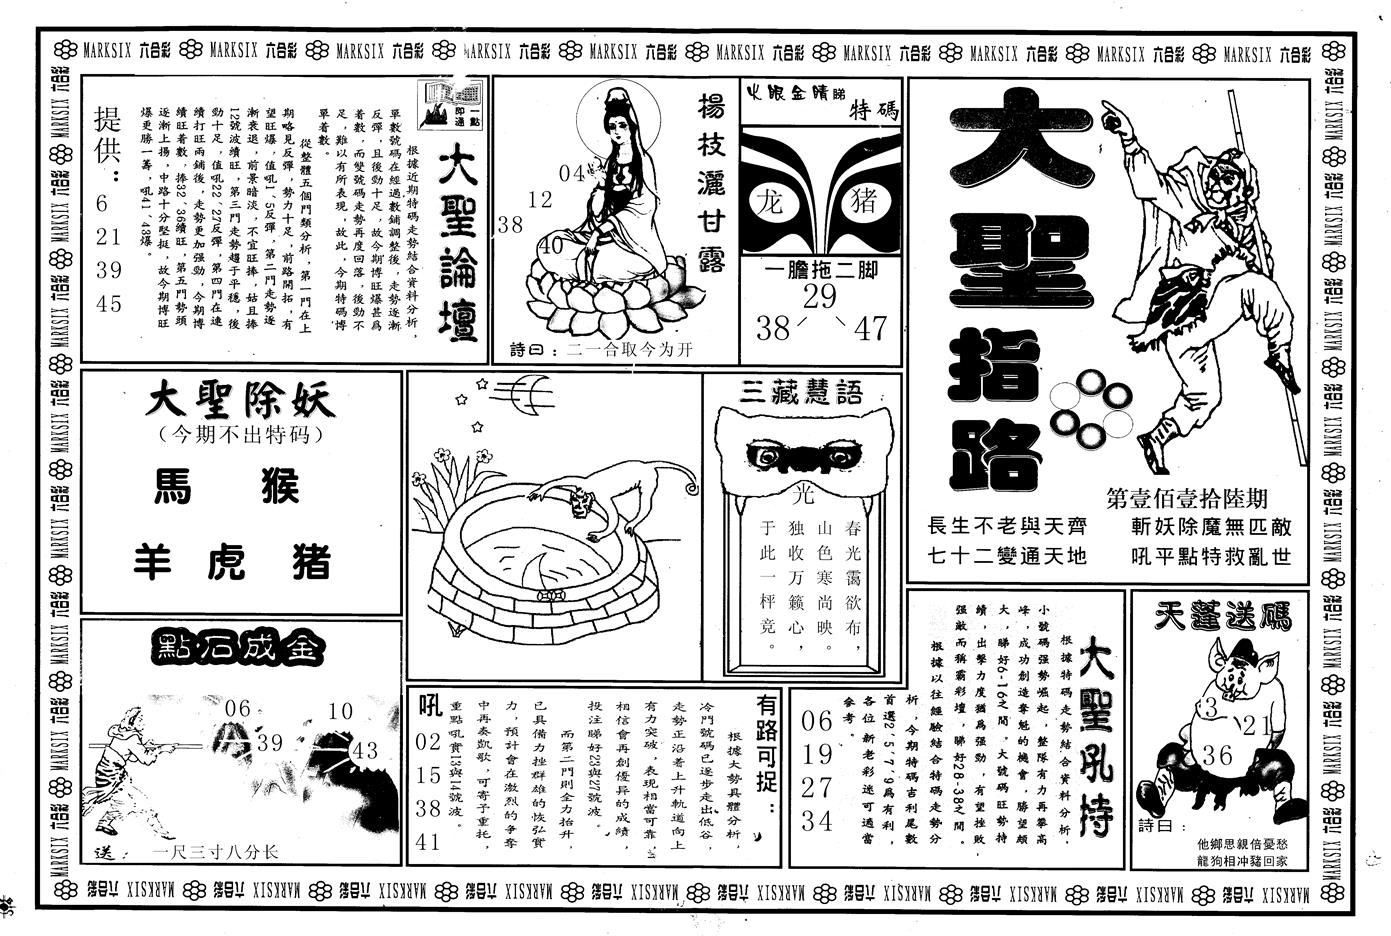 MARKSIX 六合彩 MARKSIX 六合彩 MARKSIX 六合彩 MARKSIX 六合彩 MARKSIX 六合彩 MARKSIX 六合彩 MARKSIX 六合彩 MARKSIX 六合彩 MARKSIX 六合彩 MARKSIX 六合彩
大聖指路
第壹佰壹拾陸期
長生不老與天齊 斬妖除魔無匹敵
七十二變通天地 吼平點特救亂世
火眼金睛睇特碼
龙 猪
一膽拖二脚
29
38 47
楊枝灑甘露
04
12
38
40
詩曰：二一合取今为开
一點即通
大聖論壇
根據近期特碼走勢結合資料分析，
單數號碼在經過數鋪調整後，走勢逐漸
反彈，且後勁十足，故今期博旺爆甚爲
着數，而雙號碼走勢再度回落，後勁不
足，難以有所表現，故此，今期特碼博
單着數。
從整體五個門類分析，第一門在上
期略見反彈，勢力十足，前路開拓，有
望旺爆，值吼1、5反彈，第二門走勢逐
漸衰退，前景暗淡，不宜旺捧，姑且捧
12號波續旺，第三門走勢趨于平穩，後
勁十足，值吼22、27反彈，第四門在連
續打旺兩鋪後，走勢更加强勁，今期博
續旺着數，捧32、36續旺，第五門勢頭
逐漸上揚，中路十分堅挺，故今期博旺
爆更勝一籌，吼41、43爆。
提供：
6
21
39
45
大聖除妖
（今期不出特码）
馬 猴
羊 虎 猪
三藏慧語
光
春光靄欲布，
山色寒尚映。
独收万籁心，
于此一枰竞。
點石成金
06
10
39
43
送：一尺三寸八分长
有路可捉：
根據大勢具體分析，
冷門號碼已逐步走出低谷，
走勢正沿着上升軌道向上
有力突破，表現相當可靠，
相信會再創優异的成績，
投注睇好23與27號波。
而第二門則全力抬升，
已具備力挫群雄的恢弘實
力，預計會在激烈的争奪
中再奏凱歌，可寄予重托，
重點吼實13與14號波。
吼
02
15
38
41
大聖吼特
根據特碼走勢結合資料分析，
小號碼强勢崛起，整隊有力再攀高
峰，成功創造奪魁的機會，勝望頗
大，睇好6-16之間。大號碼旺勢持
續，出擊力度猶爲强勁，有望挫敗
强敵而稱霸彩壇，睇好28-38之間。
根據以往經驗結合特碼走勢分
析，今期特碼吉利尾數
首選2、5、7、9爲有利，
各位新老彩迷可適當
參考。
06
19
27
34
天蓬送碼
3
21
36
詩曰：
他鄉思親倍憂愁
龍狗相冲豬回家